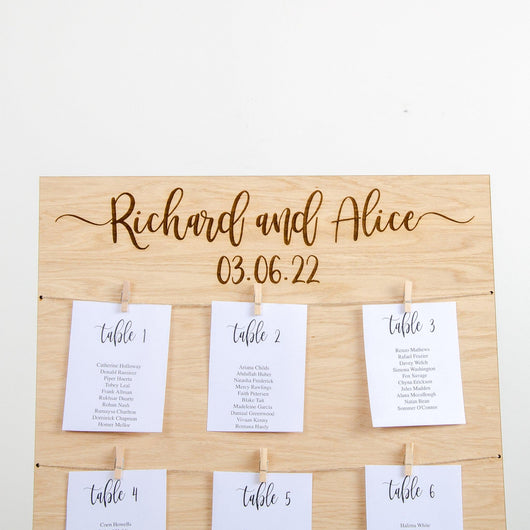 Richard and Alice
03.06.22
table 1
Catherine Holloway
Donald Ramirez
Piper Huerta
Tobey Leal
Frank Allman
Rukhsar Duarte
Rohan Nash
Ramsey Charlton
Dominick Chapman
Homer Mellor
table 2
Ariana Childs
Abdullah Huber
Natasha Frederick
Mercy Rawlings
Faith Petersen
Blake Tait
Madeleine Garcia
Danial Greenwood
Vivaan Kenny
Remana Hardy
table 3
Renzo Mathews
Rafael Frazier
Davey Welch
Simona Washington
Fox Savage
Chyna Erickson
Jules Madden
Alana Mccullough
Natan Bean
Sommer O'Connor
table 4
Coen Howells
table 5
table 6
Halima White